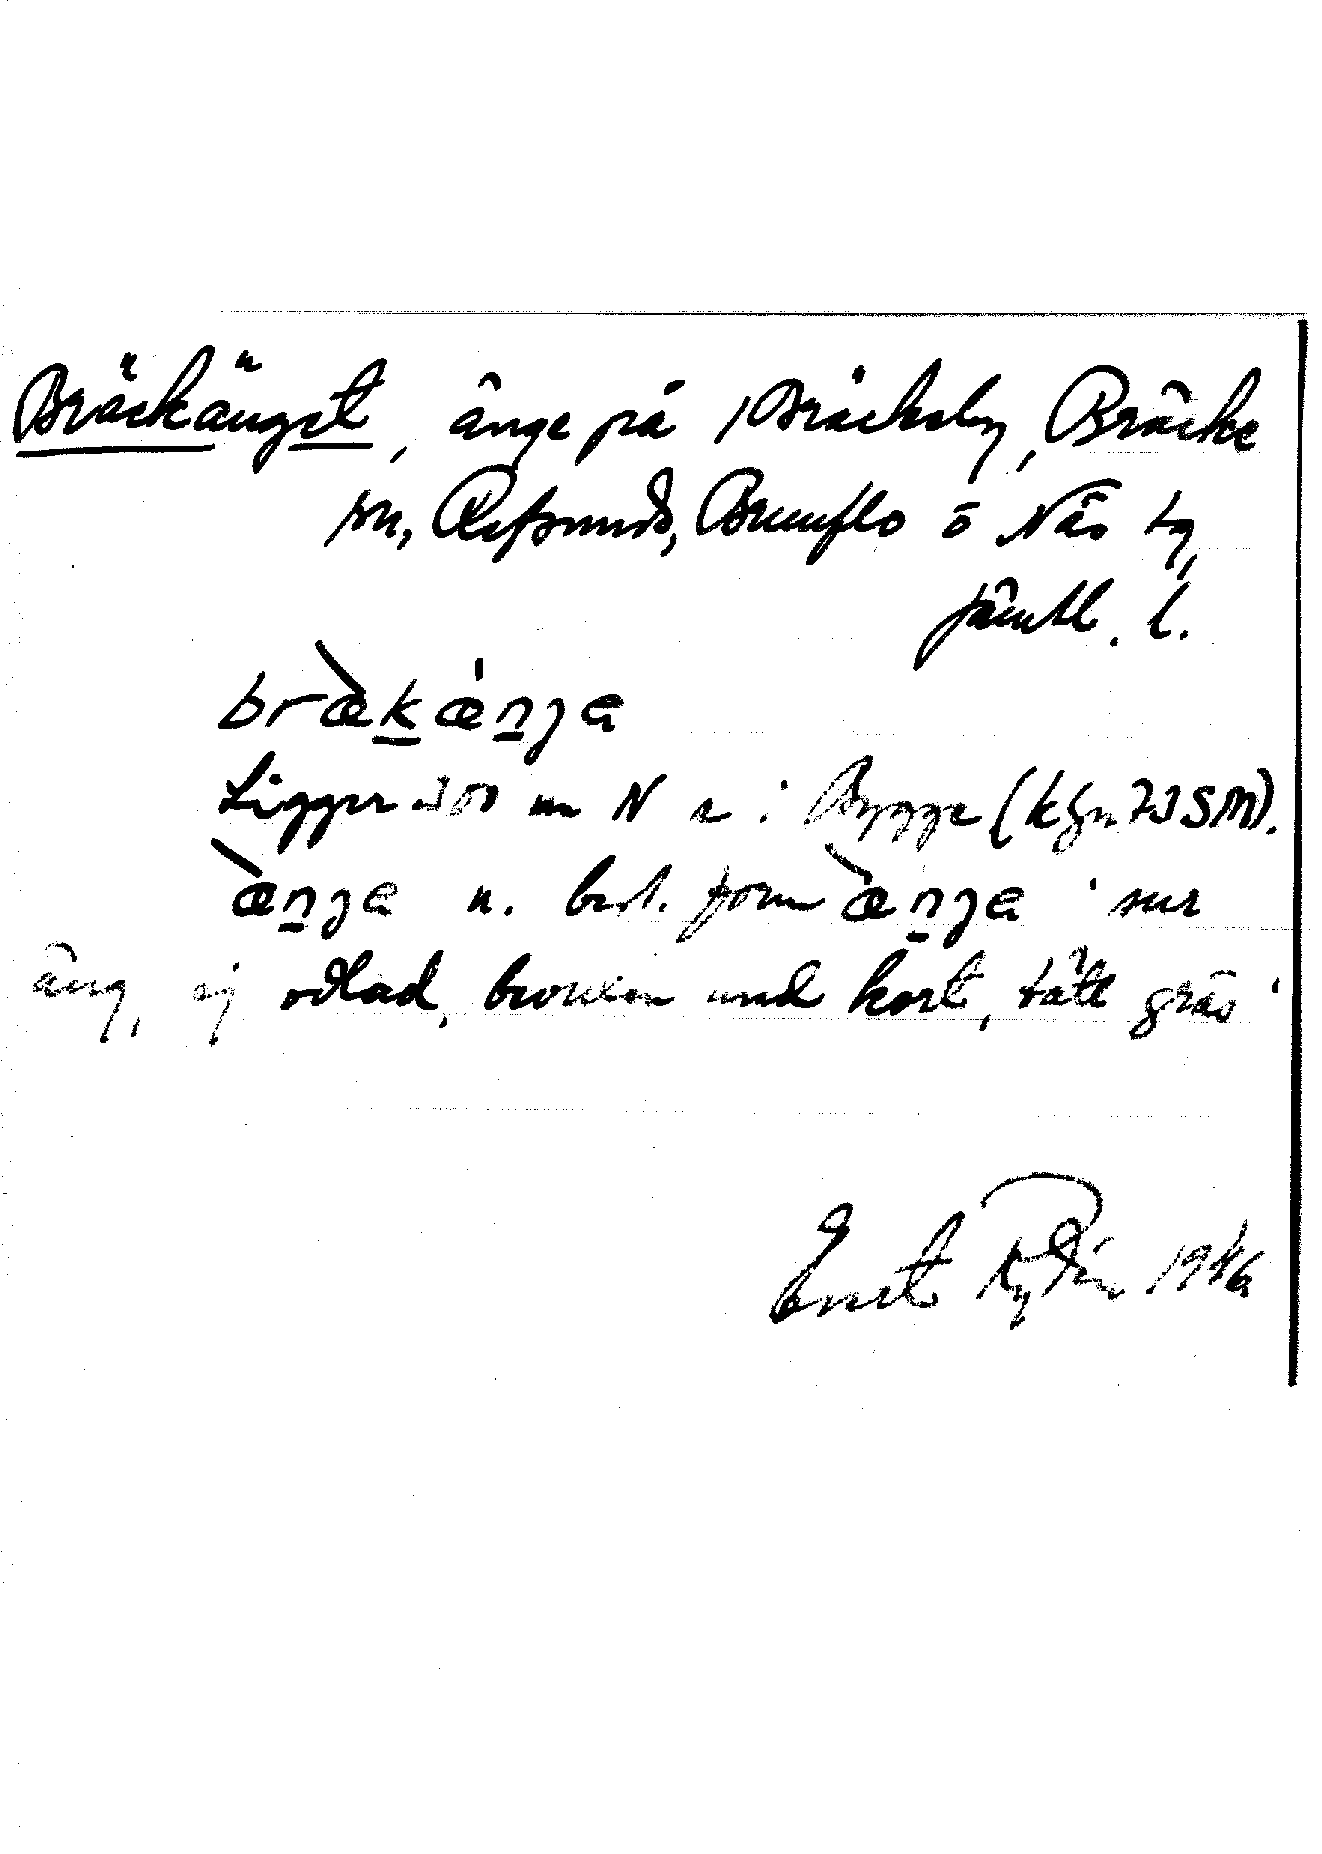 Bräckänget, änge på Bräcksby, Bräcke
sn, Refsunds, Brunflo o Näs tg,
Jämtl. l.
bræ̀kæ̀nga
Ligger 300 m N a : Bygge (kfn 73 SM).
æ̀nga n. best. form æ̀nga ' sur
äng, ej odlad, bevuxen med kort, tätt gräs '
Ernst 1946